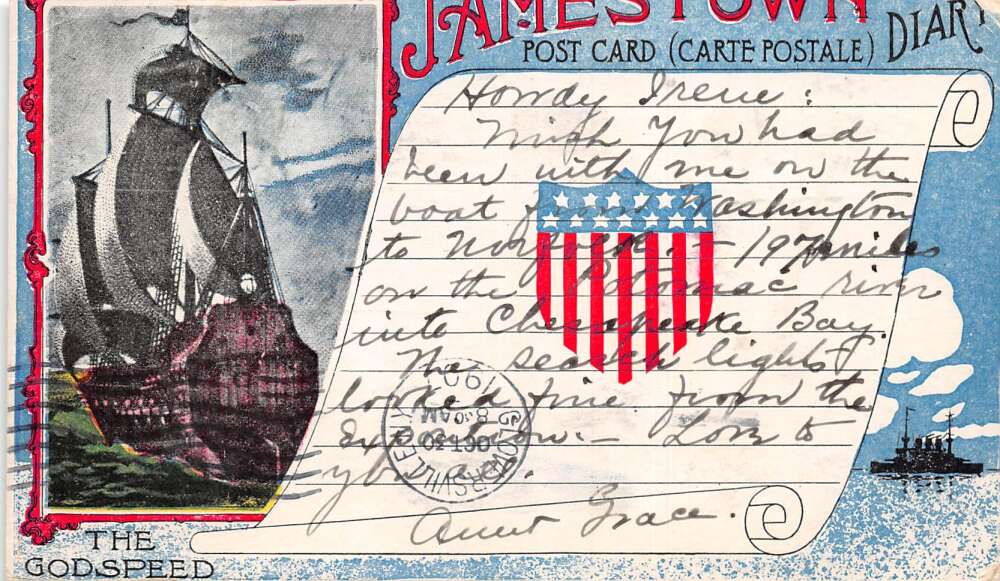 JAMESTOWN DIARY
POST CARD (CARTE POSTALE)
Howdy Irene:
Wish you had
been with me on the
boat from Washington
to Norfolk: - 197 miles
on the Potomac river
into Chesapeake Bay.
The search lights
looked fine from the
Exposition: - Love to
you all.
Aunt Grace.
GLOVERSVILLE N.Y.
OCT 30
8 30 AM
1907
THE
GODSPEED